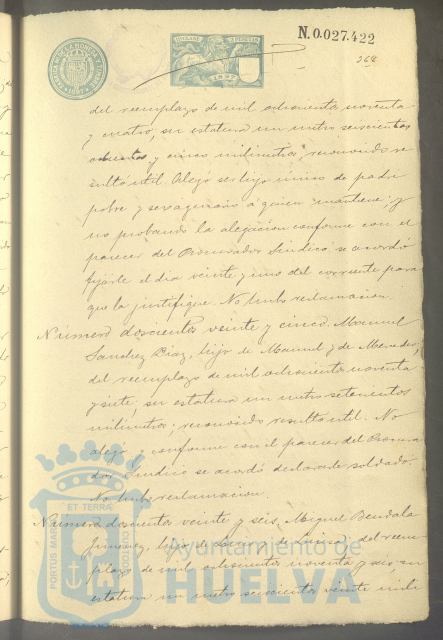 N.0.027.422
268
del reemplazo de mil ochocientos noventa
y cuatro, su estatura un metro seiscientos
ochenta y cinco milimetros, reconocido re
sultó útil. Alegó ser hijo único de padre
pobre y sexagenario á quien mantiene: y
no probando la alegacion conforme con el
parecer del Procurador Sindico se acordó
fijarle el dia veinte y uno del corriente para
que la justifique. No hubo reclamacion.
Número doscientos veinte y cinco. Manuel
Sanchez Diaz, hijo de Manuel y de Mercedes,
del reemplazo de mil ochocientos noventa
y siete; su estatura un metro setecientos
milimetros; reconocido resultó util. No
alegó y conforme con el parecer del Procura
dor Sindico se acordó declararle soldado.
No hubo reclamacion.
Número doscientos veinte y seis, Miguel Bendala
Jimenez, hijo de y de Luisa, del reem
plazo de mil ochocientos noventa y seis su
estatura un metro seiscientos veinte mili
PORTUS MARIS ET TERRAE CUSTODIA
Ayuntamiento de
HUELVA